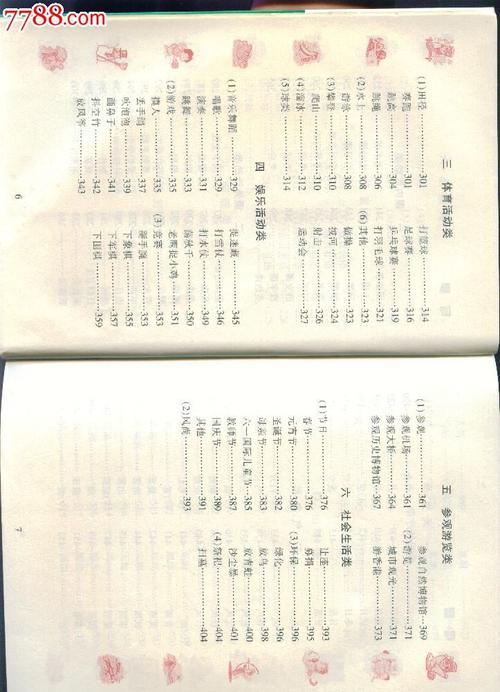 7788.com
三 体育活动类
(1)田径………301
赛跑………301
跳高………304
跳绳………306
(2)水上………308
游泳………308
(3)攀登………310
爬山………310
(4)溜冰………312
(5)球类………314
打篮球………314
足球赛………316
乒乓球赛………319
打羽毛球………321
(6)其他………323
做操………323
拔河………324
射击………326
运动会………327
四 娱乐活动类
(1)音乐舞蹈………329
唱歌………329
演奏………331
跳舞………333
(2)游戏………335
摸人………335
丢手绢………337
吹泡泡………339
画鼻子………341
抖空竹………342
放风筝………343
捉迷藏………345
打雪仗………346
打水仗………349
荡秋千………350
老鹰捉小鸡………351
(3)竞赛………353
掰手腕………353
下象棋………355
下军棋………357
下围棋………359
6
五 参观游览类
(1)参观………361
参观机场………361
参观大桥………364
参观历史博物馆………367
参观自然博物馆………369
(2)游览………371
城市观光………371
游香港………373
六 社会生活类
(1)节日………376
春节………376
元宵节………380
圣诞节………382
母亲节………383
六一国际儿童节………385
教师节………387
国庆节………389
其他………391
(2)风俗………393
让座………393
募捐………395
(3)环保………396
绿化………396
放鸟………398
放青蛙………400
沙尘暴………401
(4)祭祀………404
扫墓………404
7